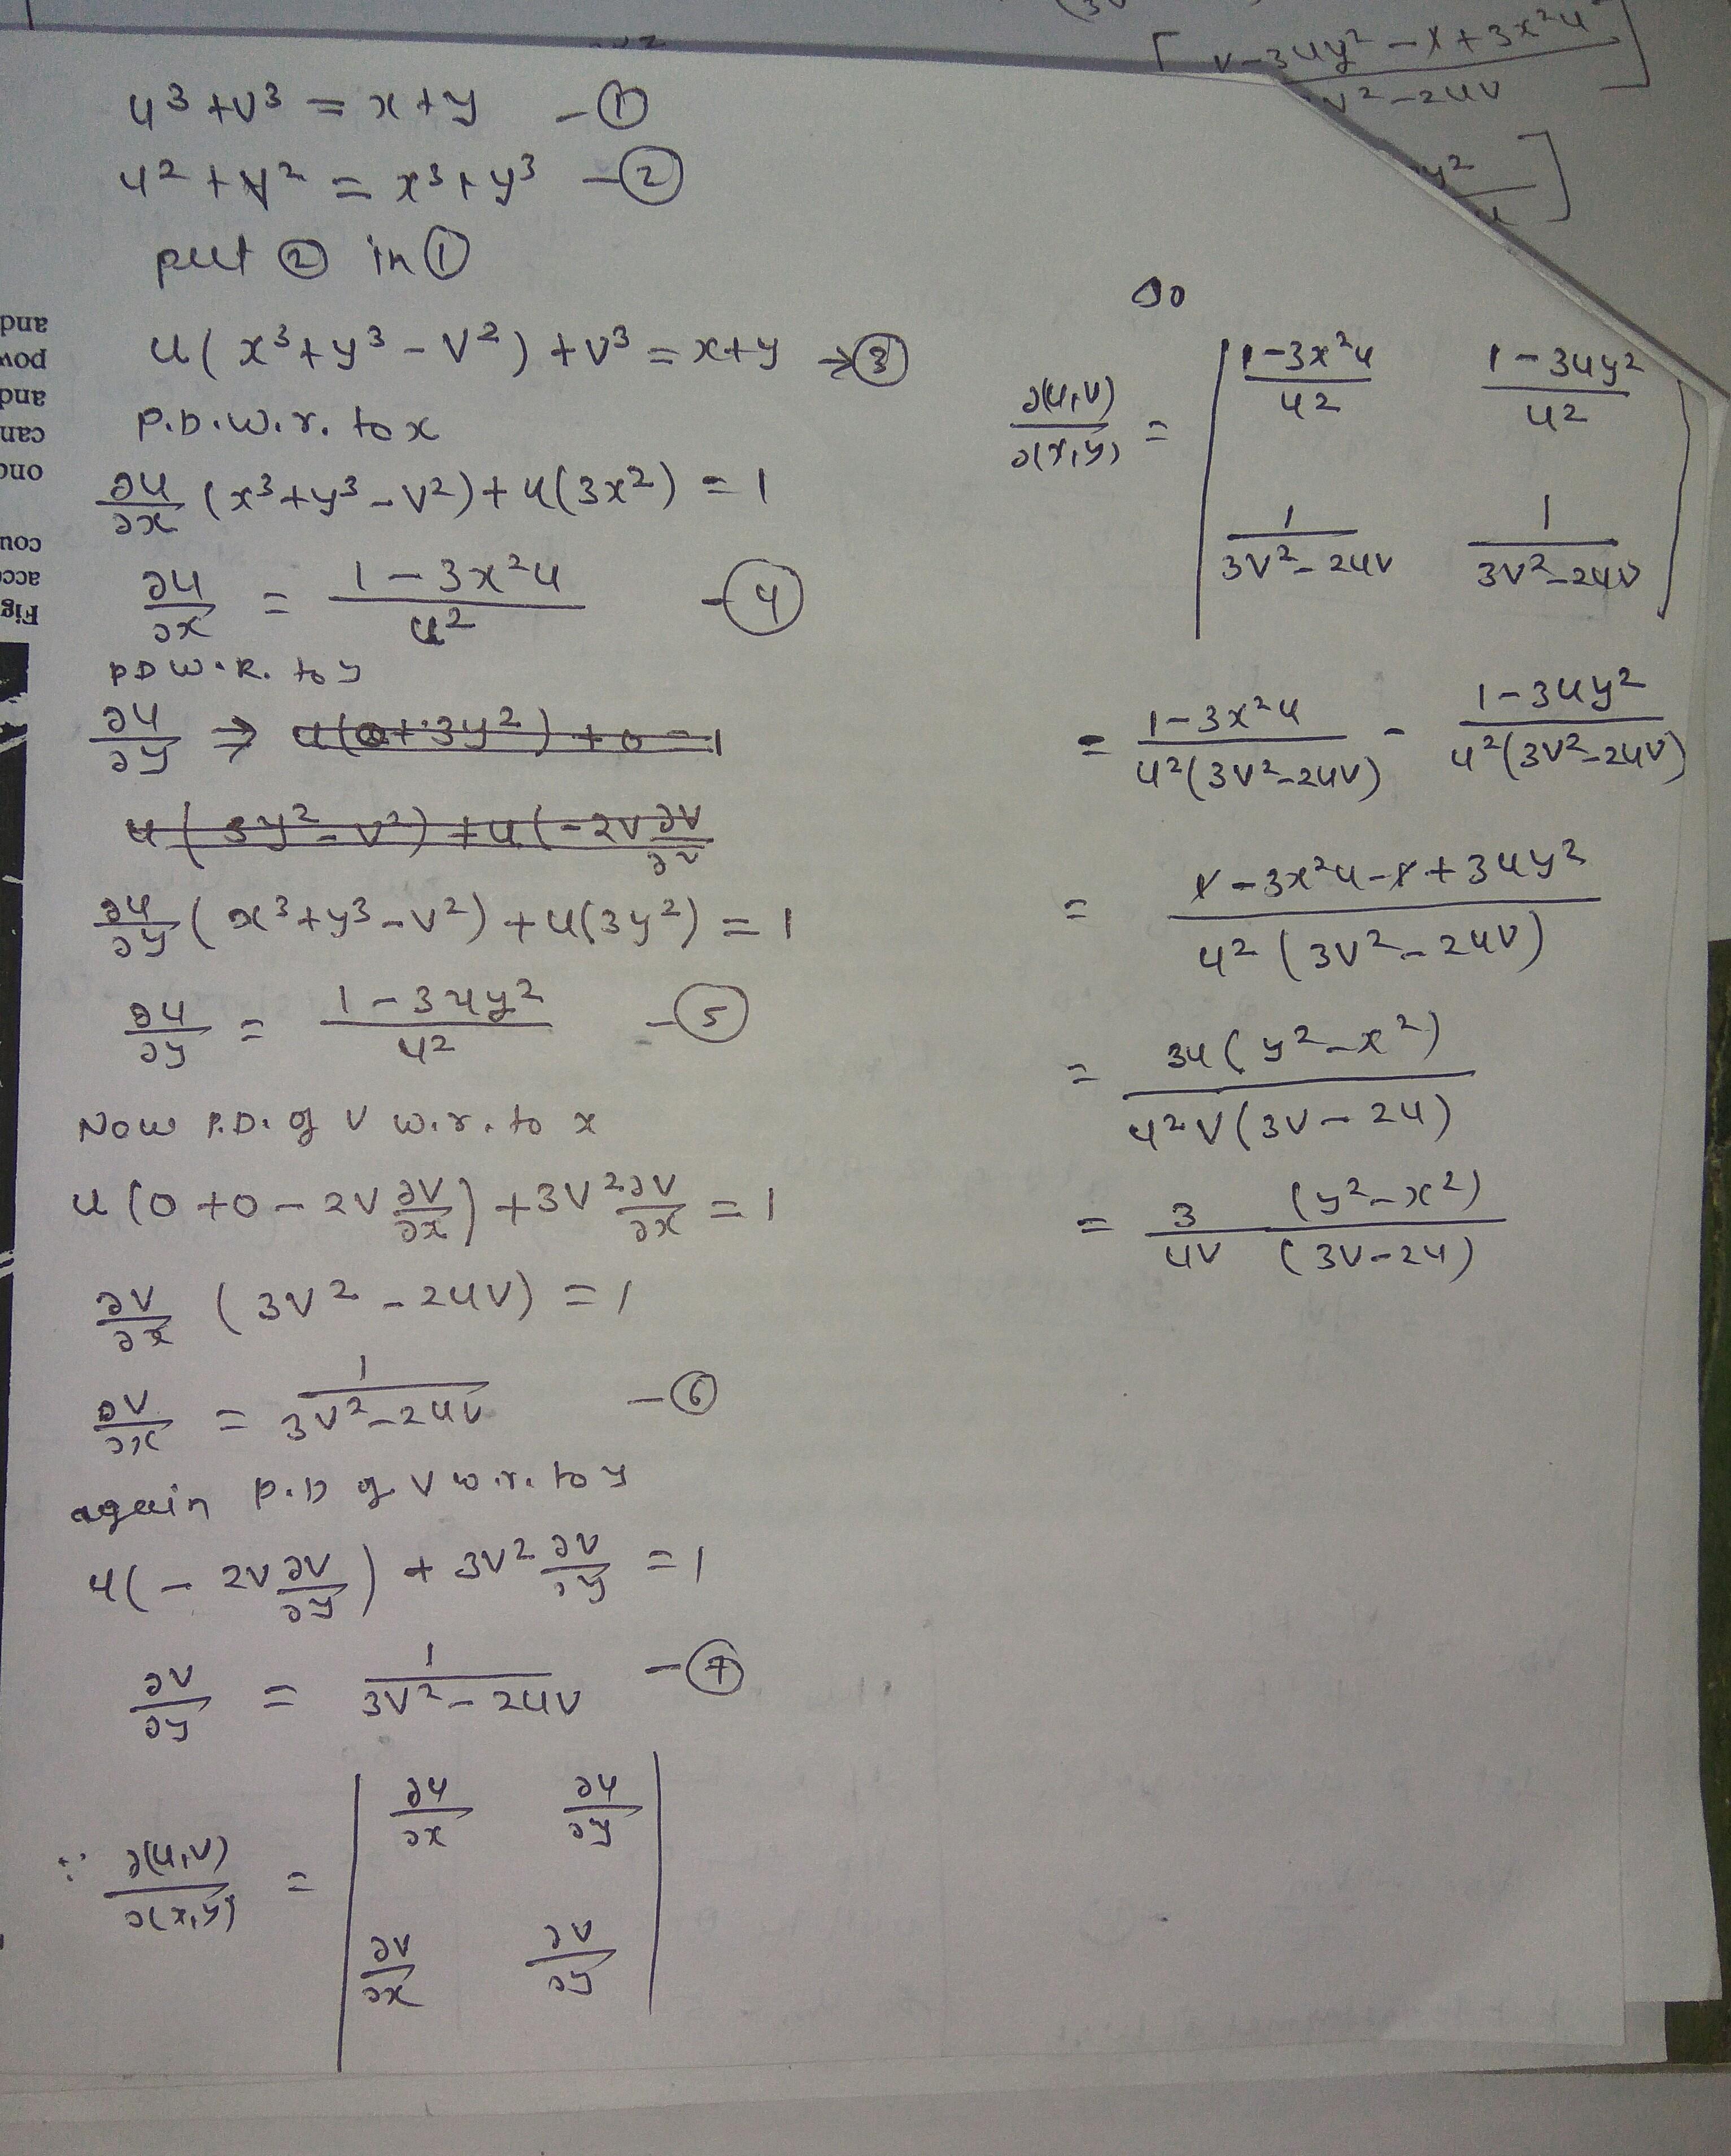 u³+v³ = x+y -①
u²+v² = x³+y³ -②
put ② in ①
u(x³+y³-v²)+v³ = x+y →③
P.D.W.r. to x
∂u/∂x (x³+y³-v²)+u(3x²) = 1
∂u/∂x = (1-3x²u)/u² -④
PDW.R. to y
∂u/∂y ⇒ u(0+3y²)+0=1
u(3y²-v²)+u(-2v ∂v
∂u/∂y (x³+y³-v²)+u(3y²) = 1
∂u/∂y = (1-3uy²)/u² -⑤
Now P.D. of v w.r. to x
u(0+0-2v ∂v/∂x)+3v² ∂v/∂x = 1
∂v/∂x (3v²-2uv) = 1
∂v/∂x = 1/(3v²-2uv) -⑥
again P.D of v w.r. to y
u(-2v ∂v/∂y)+3v² ∂v/∂y = 1
∂v/∂y = 1/(3v²-2uv) -⑦
∵ ∂(u,v)/∂(x,y) = | ∂u/∂x ∂u/∂y |
| ∂v/∂x ∂v/∂y |
So
∂(u,v)/∂(x,y) = | (1-3x²u)/u² (1-3uy²)/u² |
| 1/(3v²-2uv) 1/(3v²-2uv) |
= (1-3x²u)/(u²(3v²-2uv)) - (1-3uy²)/(u²(3v²-2uv))
= (1-3x²u-1+3uy²)/(u²(3v²-2uv))
= 3u(y²-x²)/(u²v(3v-2u))
= 3/uv (y²-x²)/(3v-2u)
-3uy²-1+3x²u ]
v²-2uv
y² ]
and
pow
and
can
ond
cou
acce
Fig